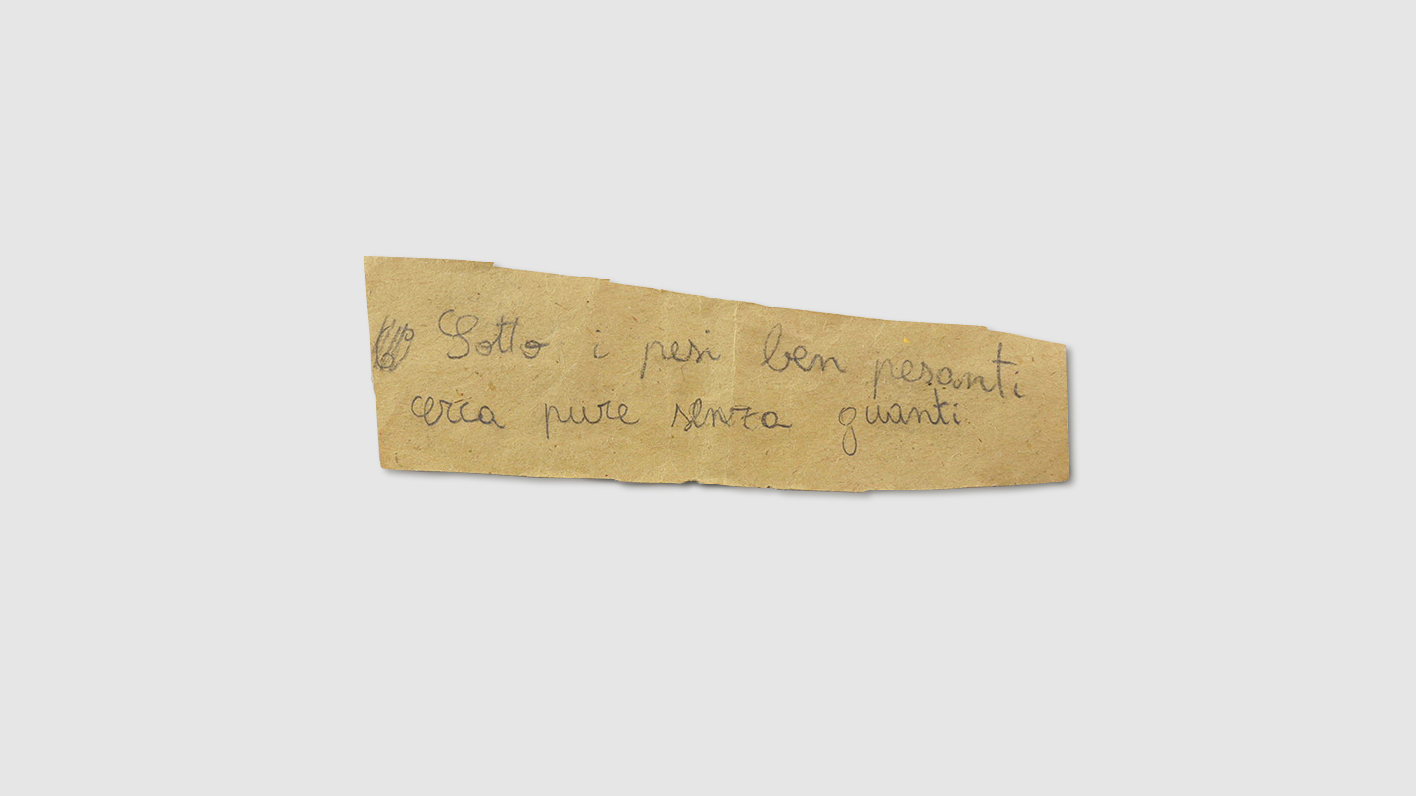 Sotto i pesi ben pesanti
cerca pure senza guanti